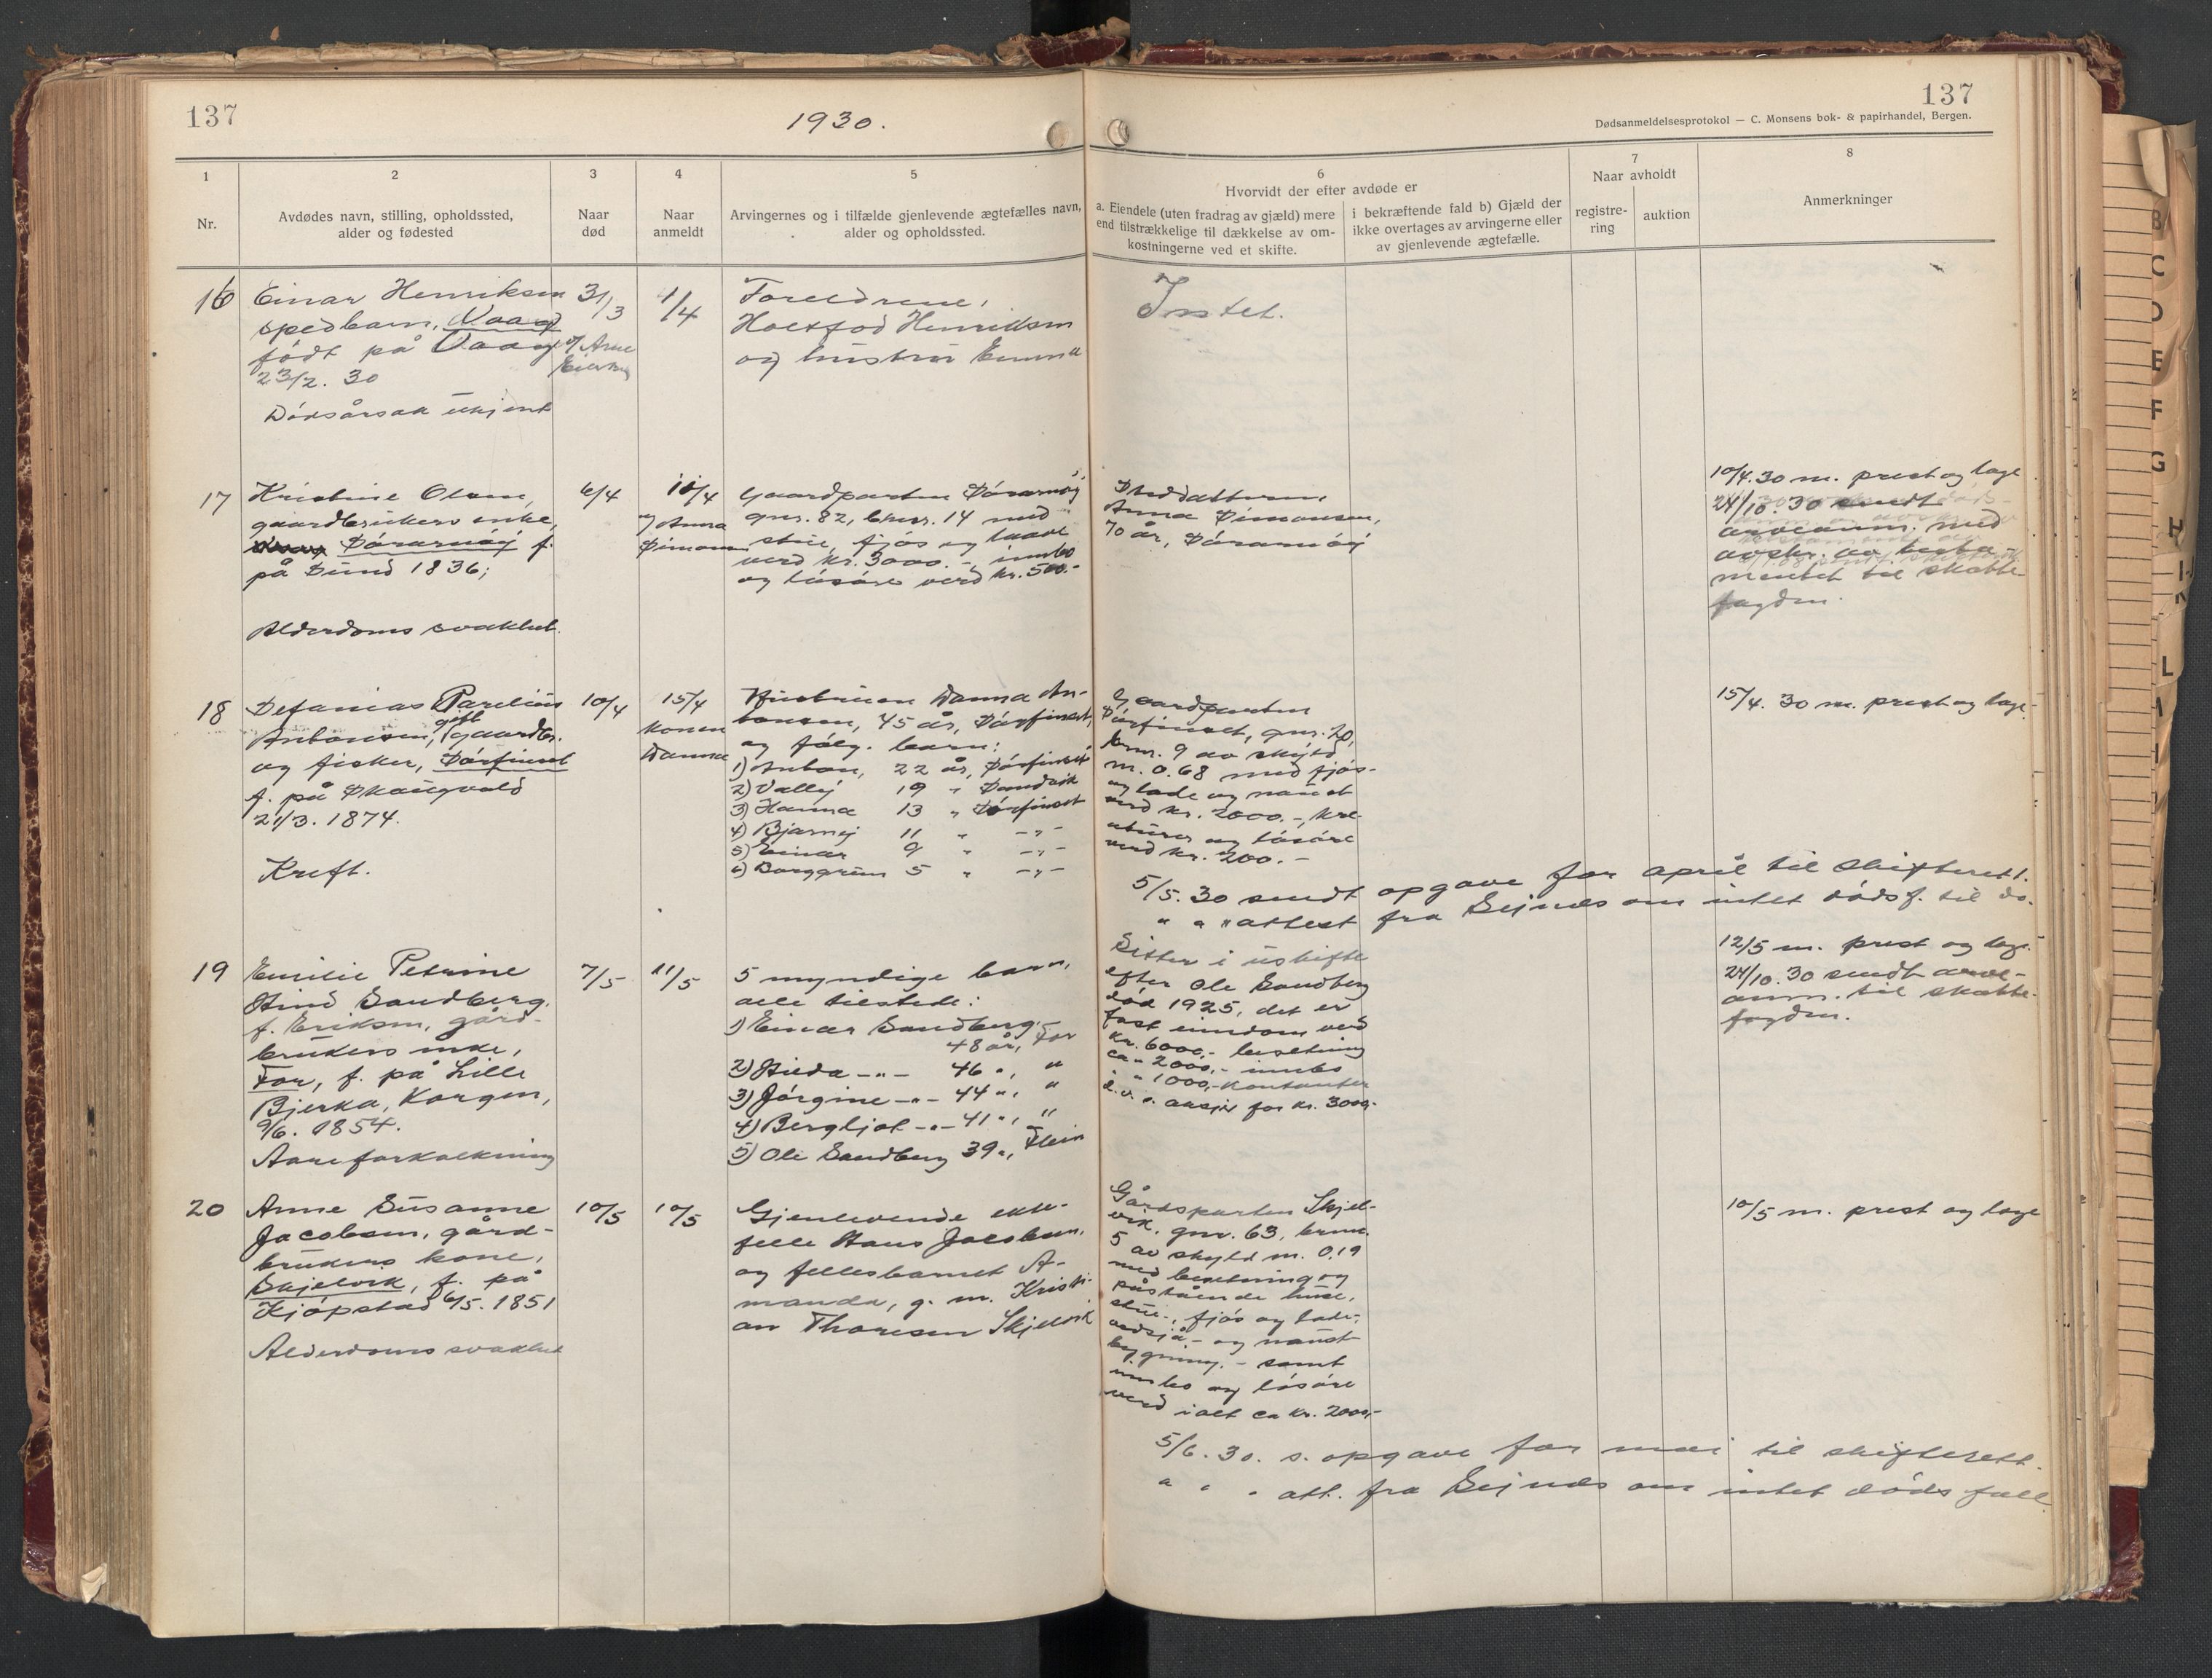 137
1930.
137
Dødsanmeldelsesprotokol — C. Monsens bok- & papirhandel, Bergen.
1
Nr.
2
Avdødes navn, stilling, opholdssted,
alder og fødested
3
Naar
død
4
Naar
anmeldt
5
Arvingernes og i tilfælde gjenlevende ægtefælles navn,
alder og opholdssted.
6
Hvorvidt der efter avdøde er
a. Eiendele (uten fradrag av gjæld) mere
end tilstrækkelige til dækkelse av om-
kostningerne ved et skifte.
i bekræftende fald b) Gjæld der
ikke overtages av arvingerne eller
av gjenlevende ægtefælle.
7
Naar avholdt
registre-
ring
auktion
8
Anmerkninger
16
Einar Henriksen
spedbarn, Vaag
født på Vaag
23/2. 30
Dødsårsak ukjent
31/3
v/ Arne
1/4
Foreldrene,
Henriksen
og hustru Emma
Intet.
17
Kristine Olsen,
gaardbrukers enke,
Sørarnøy f.
på Sund 1836;
Alderdoms svakhet.
6/4
10/4
v/ Anna
Simonsen
Gaardparten Sørarnøy
gnr. 82, bknr. 14 med
stue, fjøs og laave
verd kr. 3000.-, innbo
og løsøre verd kr. 500.-
Steddatteren
Anna Simonsen,
70 år, Sørarnøy
10/4.30 m. prest og lage
24/10.30 sendt
arveanm. med
avskr. av testa-
mentet til skatte-
fogden.
18
Sefanias Parelius
Antonsen, gift gaardbr.
og fisker, Sørfinset
f. på Skaugvold
21/3. 1874.
Kreft.
10/4
15/4
konen
Danna
Hustruen Danna An-
tonsen, 45 år, Sørfinset,
og følg. barn:
1) Anton, 22 år, Sørfinset
2) Valley 19 " Sandvik
3) Hanna 13 " Sørfinset
4) Bjarney 11 " -"-
5) Einar 9 " -"-
6) Borggrim 5 " -"-
Gaardparten
Sørfinset, gnr. 20,
brnr. 9 av skyld
m. 0.68 med fjøs-
og lade og naust
verd kr. 2000.-, kre-
aturer og løsøre
verd kr. 200.-
15/4. 30 m. prest og lage.
5/5. 30 sendt opgave for april til skifterett.
" " " attest fra Seines om intet dødsf. til do.
19
Emilie Petrine
Stind Sandberg.
f. Eriksen, gård-
brukers enke,
For, f. på Lille
Bjerka, Korgen,
9/6. 1854.
Aareforkalkning
7/5
11/5
5 myndige barn,
alle tilstede:
1) Einar Sandberg.
48 år, For
2) Hilda -"- 46 ", "
3) Jørgine -"- 44 ", "
4) Bergljot -"- 41 ", "
5) Ole Sandberg 39 ",
Sitter i uskifte
efter Ole Sandberg
død 1925, det er
fast eiendom verd
kr. 6000,- besetning
ca " 2000,- innbo
" " 1000,- kontanter
aksjer for kr. 3000.-
12/5 m. prest og lage.
24/10.30 sendt arve-
anm. til skatte-
fogden.
20
Anne Susanne
Jacobsen, gård-
brukers kone,
Skjelvik, f. på
Kjøpstad 6/5. 1851
Alderdoms svakhet
10/5
10/5
Gjenlevende ekte-
felle Hans Jacobsen,
og fellesbarnet A-
manda, g. m. Kristi-
an Thoresen Skjelvik
Gårdsparten Skjel-
vik, gnr. 63, brnr.
5 av skyld m. 0.19
med besetning og
påstående huse,
stue-, fjøs og lade-,
vedsjå- og naust-
bygning. - samt
innbo og løsøre
verd ialt ca kr. 2000,-
10/5 m. prest og lage
5/6. 30. s. opgave for mai til skifterett.
" " " att. fra Seines om intet dødsfall.